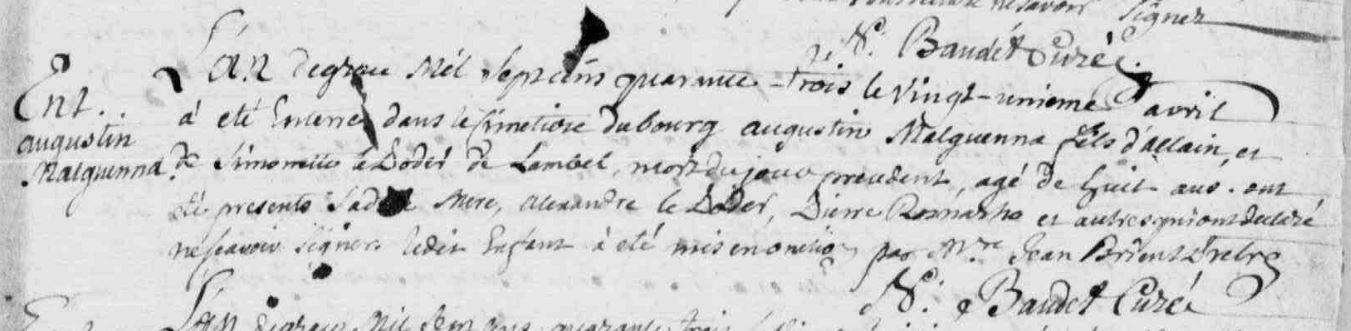 ne savoir Signer
N: Baudet Curé
L'an de grace Mil Sept cens quarante-trois le vingt-unieme avril
Ent. augustin Malguenna
à eté Enterré dans le Simetiere du bourg augustin Malguenna fils d'allain, et
de Simonette le Doder de Lambel, mort du jour precedent, agé de huit ans. ont
été presents Sadite Mere, Alexandre le Doder, Pierre et autres qui ont declaré
ne scavoir Signer ledit Enfant à eté mis en par Mre Jean Brient Prebre
N: Baudet Curé
L'an de grace Mil Sept cens quarante trois